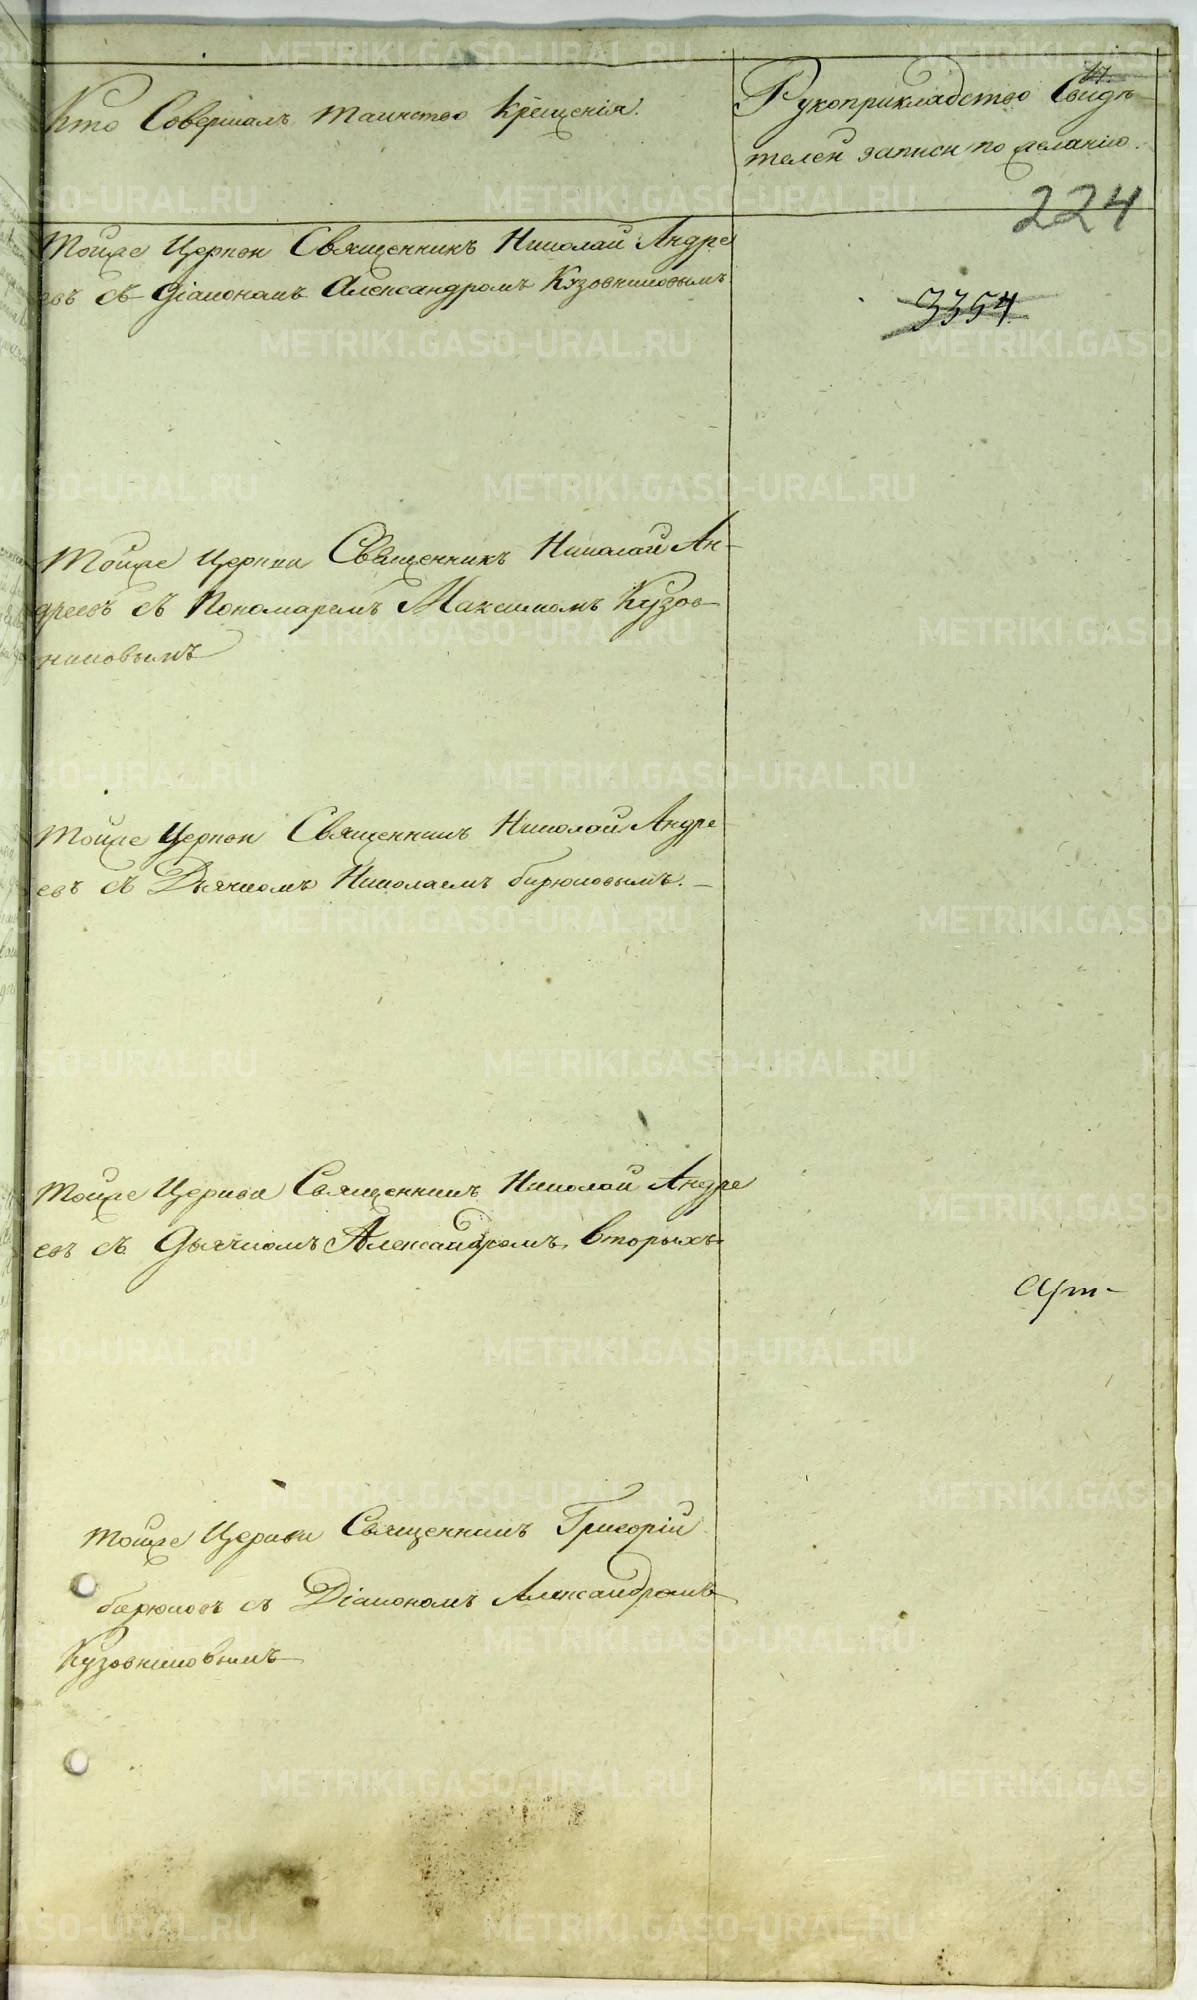 Кто Совершалъ таинство крещенія.
Рукоприкладство Свидѣ
телей записи по желанію.
224
3354
тойже Церкви Священникъ Николай Андре
евъ съ Діакономъ Александромъ Кузовниковымъ
тойже Церкви Священникъ Николай Ан-
дреевъ съ Пономаремъ Максимомъ Кузов
никовымъ
тойже Церкви Священникъ Николай Андре
евъ съ Дьячкомъ Николаемъ бирюковымъ.
тойже Церкви Священникъ Николай Андре
евъ съ Дьячкомъ Александромъ Вторыхъ
тойже Церкви Священникъ Григорій
бирюковъ съ Діакономъ Александромъ
Кузовниковымъ
METRIKI.GASO-URAL.RU